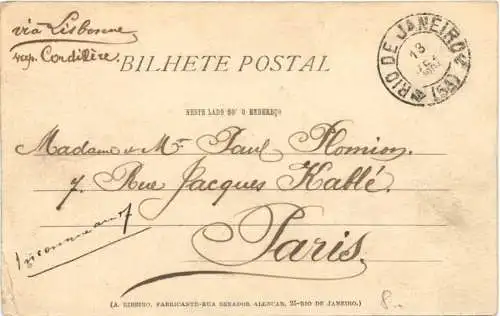 via Lisbonne
vap. Cordillère
BILHETE POSTAL
RIO DE JANEIRO
13
(5A)
NESTE LADO SO' O ENDEREÇO
Madame et Mr Paul Plomion
7. Rue Jacques Kablé.
Paris.
Inconnu au 7
(A. RIBEIRO, FABRICANTE-RUA SENADOR ALENCAR, 25-RIO DE JANEIRO.)
8.-